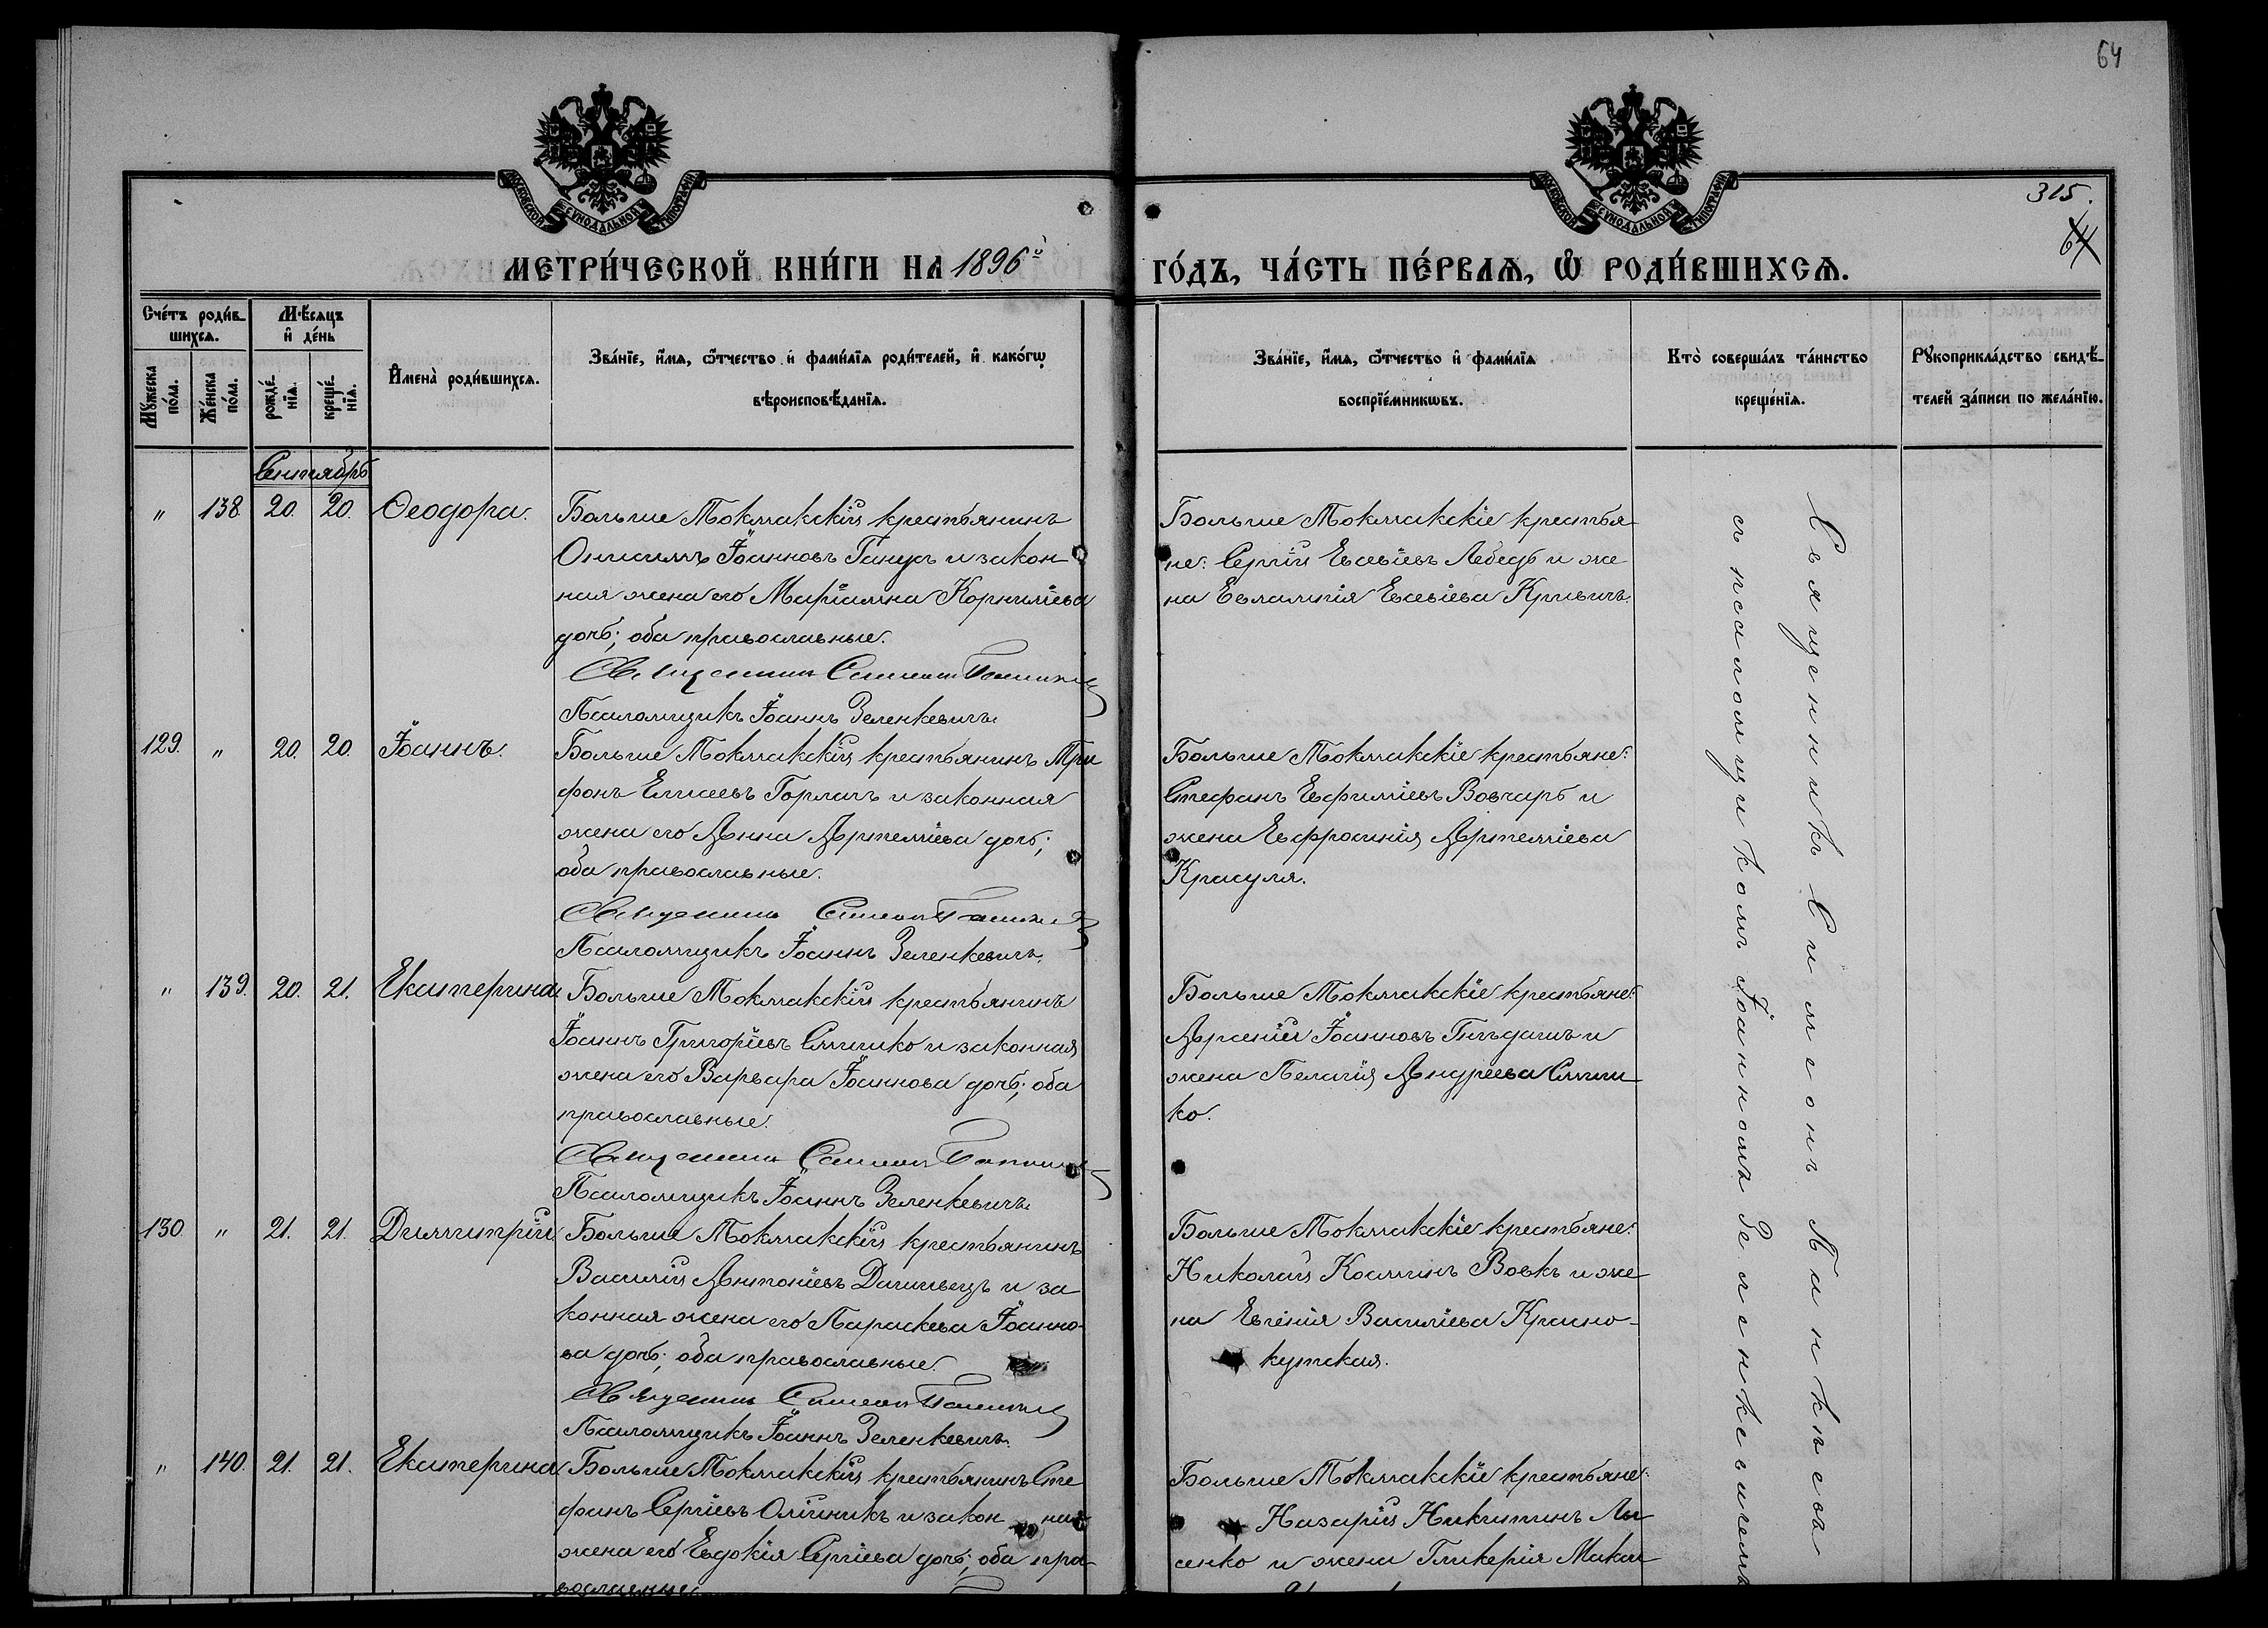 64
315.
64
МОСКОВСКОЙ СѴНОДАЛЬНОЙ ТИПОГРАФІИ
МОСКОВСКОЙ СѴНОДАЛЬНОЙ ТИПОГРАФІИ
МЕТРИ́ЧЕСКОЙ КНИ́ГИ НА 1896й
ГО́ДЪ, ЧА́СТЬ ПЕ́РВАѦ, Ѿ РОДИ́ВШИХСѦ.
Сче́тъ роди́в-
шихсѧ.
Мѣ́сѧцъ
и҆ де́нь
Мꙋ́жеска
по́ла.
Же́нска
по́ла.
рожде́-
нїѧ.
креще́-
нїѧ.
И҆мена̀ роди́вшихсѧ.
Зва́нїе, и҆́мѧ, ѻ҆́тчество и҆ фами́лїѧ роди́телей, и҆ како́гѡ
вѣроисповѣ́данїѧ.
Зва́нїе, и҆́мѧ, ѻ҆́тчество и҆ фами́лїѧ
воспрїе́мникѡвъ.
Кто̀ соверша́лъ та́инство
креще́нїѧ.
Рꙋкоприкла́дство свидѣ́-
телей за́писи по жела́нїю.
Сентябрь
" 138. 20. 20. Ѳеодора.
Больше Токмакскій крестьянинъ
Онисимъ Іоанновъ Ганус и закон-
ная жена его Маріамна Корниліева
дочь; оба православные.
Священникъ Симеонъ
Псаломщикъ Іоаннъ Зеленкевичъ.
Больше Токмакскіе крестья-
не: Сергій Евсевіевъ Лебедь и же-
на Евлампія Евсевіева Кривичъ.
129. " 20. 20. Іоаннъ.
Больше Токмакскій крестьянинъ Три-
фонъ Елисеевъ Горлачъ и законная
жена его Анна Артеміева дочь;
оба православные.
Священникъ Симеонъ
Псаломщикъ Іоаннъ Зеленкевичъ.
Больше Токмакскіе крестьяне:
Стефанъ Евфиміевъ Вовчарь и
жена Евфросинія Артеміева
Красуля.
" 139. 20. 21. Екатерина
Больше Токмакскій крестьянинъ
Іоаннъ Григоріевъ Сышко и законная
жена его Варвара Іоаннова дочь; оба
православные.
Священникъ Симеонъ
Псаломщикъ Іоаннъ Зеленкевичъ.
Больше Токмакскіе крестьяне:
Арсеній Іоанновъ Гнѣдашъ и
жена Пелагія Андреева Сыш-
ко.
130. " 21. 21. Димитрій
Больше Токмакскій крестьянинъ
Василій Антоніевъ и за-
конная жена его Параскева Іоанно-
ва дочь; оба православные.
Священникъ Симеонъ
Псаломщикъ Іоаннъ Зеленкевичъ.
Больше Токмакскіе крестьяне:
Николай Косминъ Вовкъ и же-
на Евгенія Василіева Красно-
кутская.
" 140. 21. 21. Екатерина
Больше Токмакскій крестьянинъ Сте-
фанъ Сергіевъ Олійникъ и закон ная
жена его Евдокія Сергіева дочь; оба пра-
вославные
Больше Токмакскіе крестьяне:
Назарій Никитинъ Лы-
сенко и жена Гликерія
Священникъ Симеонъ
съ псаломщикомъ Іоанномъ Зеленкевичемъ